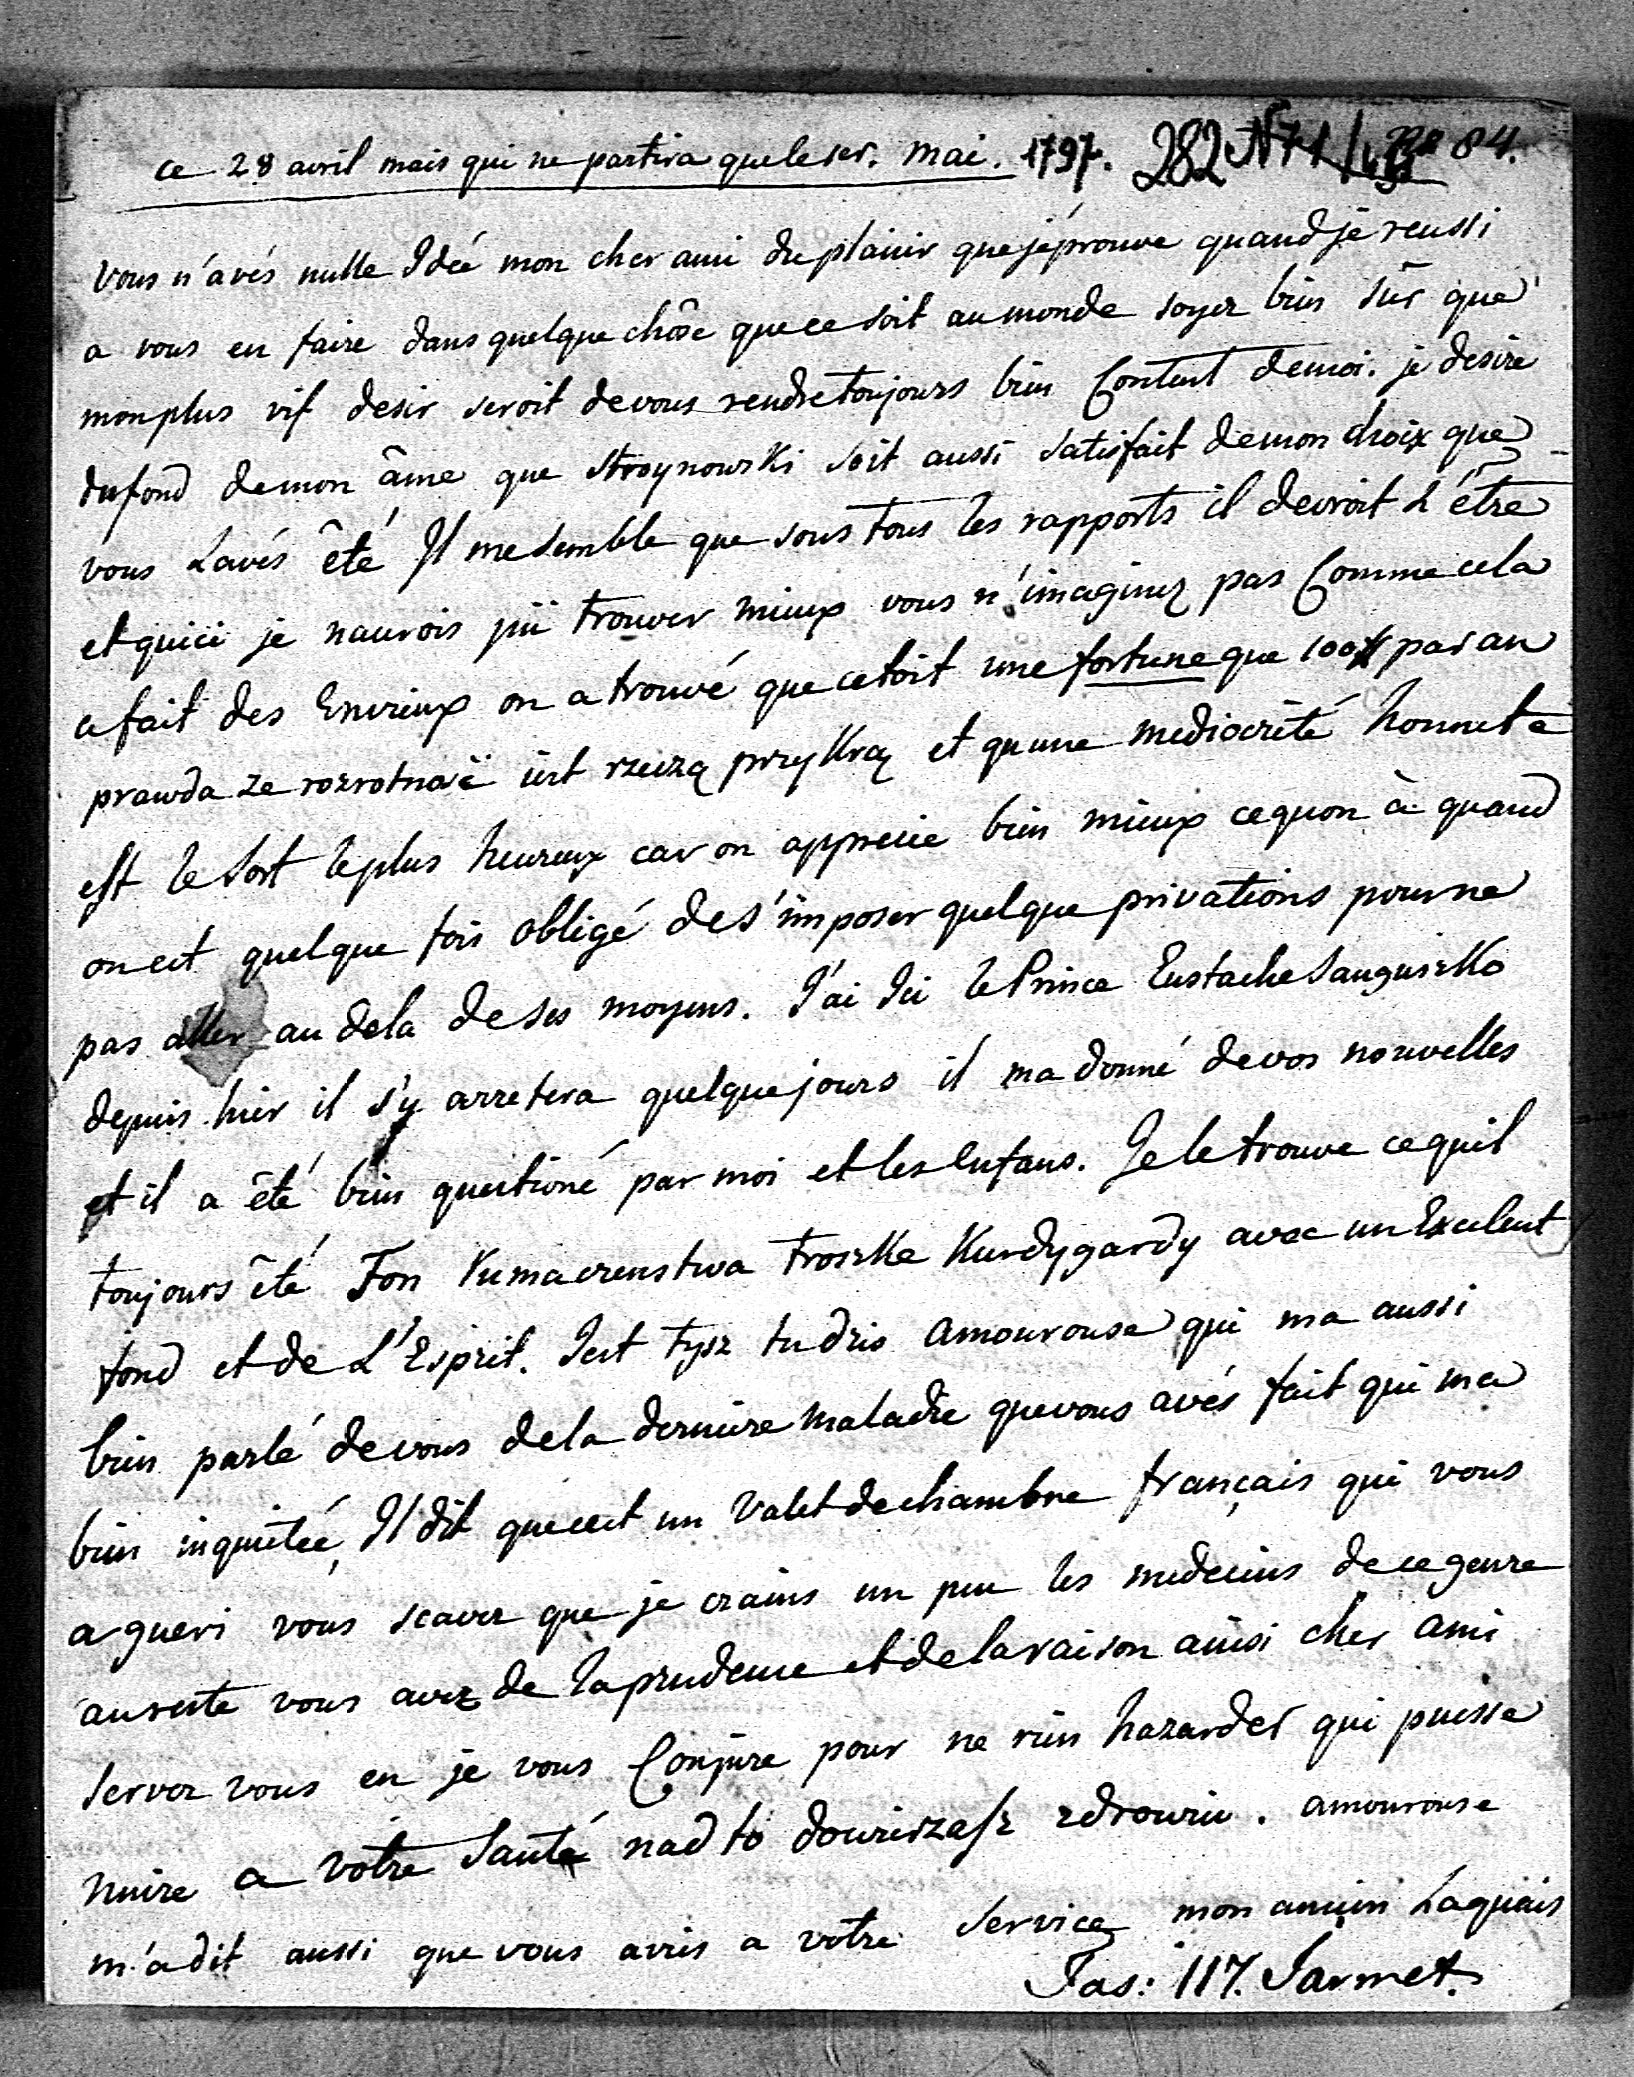 ce 28 avril mais qui ne partira que le 1er. mai. 1797. 282 N71 84.
Vous n'avés nulle Idée mon cher ami du plaisir que jéprouve quand je reussi
a vous en faire dans quelque chôse que ce soit au monde soyez bien sûr que
mon plus vif desir seroit de vous rendre toujours bien Content de moi. je desire
du fond de mon âme que Stroynowski soit aussi satisfait de mon choix que
vous Lavés êté Il me semble que sous tous les rapports il devroit L'être
et quici je naurois pû trouver mieux vous n'imaginez pas Comme cela
a fait des Envieux on a trouvé que cetoit une fortune que 100# par an
prawda ze rozrotnosć iest rzeczą przykrą et quune mediocrité honnete
est le sort le plus heureux car on apprecie bien mieux cequon à quand
on est quelque fois obligé de s'imposer quelque privations pour ne
pas aller au dela de ses moyens. J'ai Ici le Prince Eustache Sanguszko
depuis hier il s'y arretera quelque jours il ma donné de vos nouvelles
et il a êté bien questioné par moi et les Enfans. Je le trouve cequil
toujours êté Ton Kumaczenstwa troszke Kurdygardy avec un Excelent
fond et de L'Esprit. Jest tysz tu dzis Amourouse qui ma aussi
bien parlé de vous de la derniere maladie que vous avés fait qui ma
bien inquiétée, Il dit que cest un Valet de chambre français qui vous
a gueri vous scavez que je crains un peu les medecins de ce genre
au reste vous avez de la prudence et de la raison ainsi cher ami
servez vous en je vous Conjure pour ne rien hazarder qui puisse
nuire a votre Santé nad to dowiesz asz zdrowiu. amourouse
m'a dit aussi que vous aviés a votre service mon ancien Laquais
Fas: 117. Sarmet.